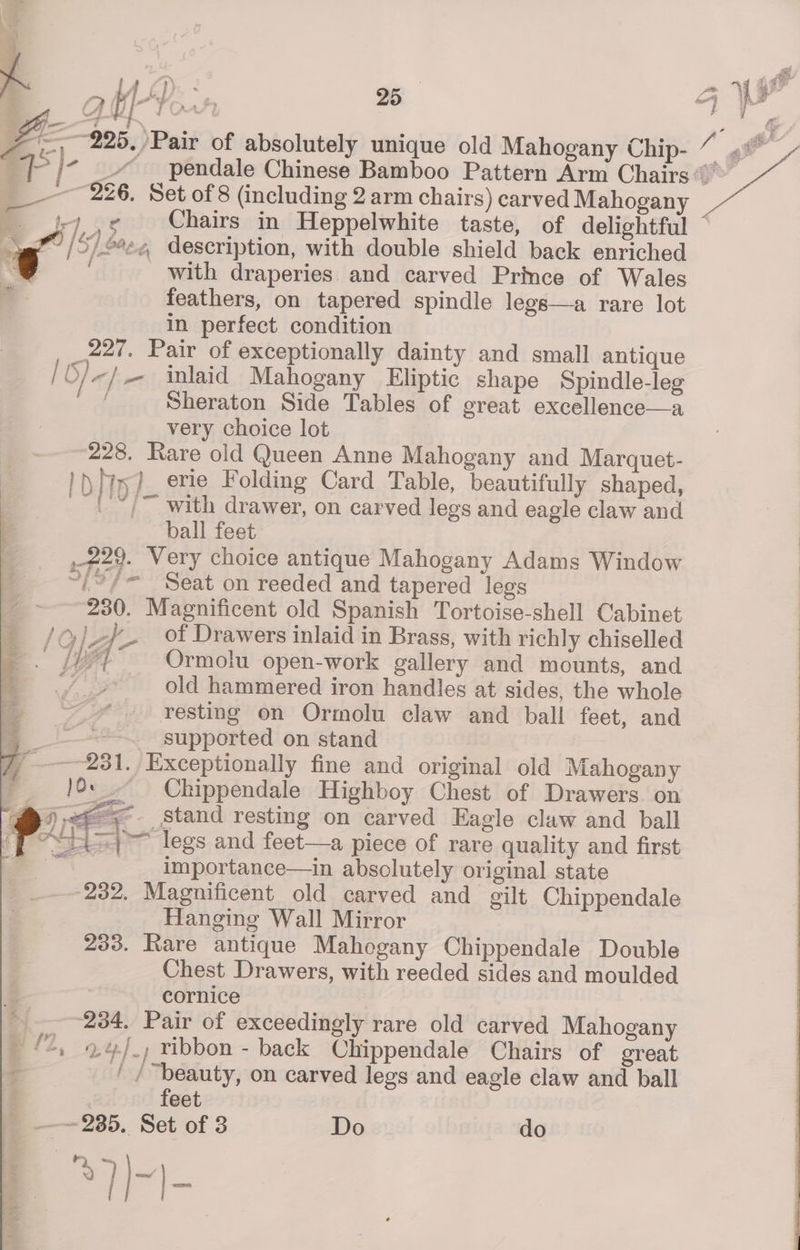 25
225. Pair of absolutely unique old Mahogany Chip-
pendale Chinese Bamboo Pattern Arm Chairs
226. Set of 8 (including 2 arm chairs) carved Mahogany
Chairs in Heppelwhite taste, of delightful
description, with double shield back enriched
with draperies and carved Prince of Wales
feathers, on tapered spindle legs—a rare lot
in perfect condition
227. Pair of exceptionally dainty and small antique
inlaid Mahogany Eliptic shape Spindle-leg
Sheraton Side Tables of great excellence—a
very choice lot
228. Rare old Queen Anne Mahogany and Marquet-
erie Folding Card Table, beautifully shaped,
with drawer, on carved legs and eagle claw and
ball feet
229. Very choice antique Mahogany Adams Window
Seat on reeded and tapered legs
230. Magnificent old Spanish Tortoise-shell Cabinet
of Drawers inlaid in Brass, with richly chiselled
Ormolu open-work gallery and mounts, and
old hammered iron handles at sides, the whole
resting on Ormolu claw and ball feet, and
supported on stand
231. Exceptionally fine and original old Mahogany
Chippendale Highboy Chest of Drawers on
stand resting on carved Eagle claw and ball
legs and feet—a piece of rare quality and first
importance—in absolutely original state
232. Magnificent old carved and gilt Chippendale
Hanging Wall Mirror
233. Rare antique Mahogany Chippendale Double
Chest Drawers, with reeded sides and moulded
cornice
234. Pair of exceedingly rare old carved Mahogany
ribbon-back Chippendale Chairs of great
beauty, on carved legs and eagle claw and ball
feet
235. Set of 3 Do do